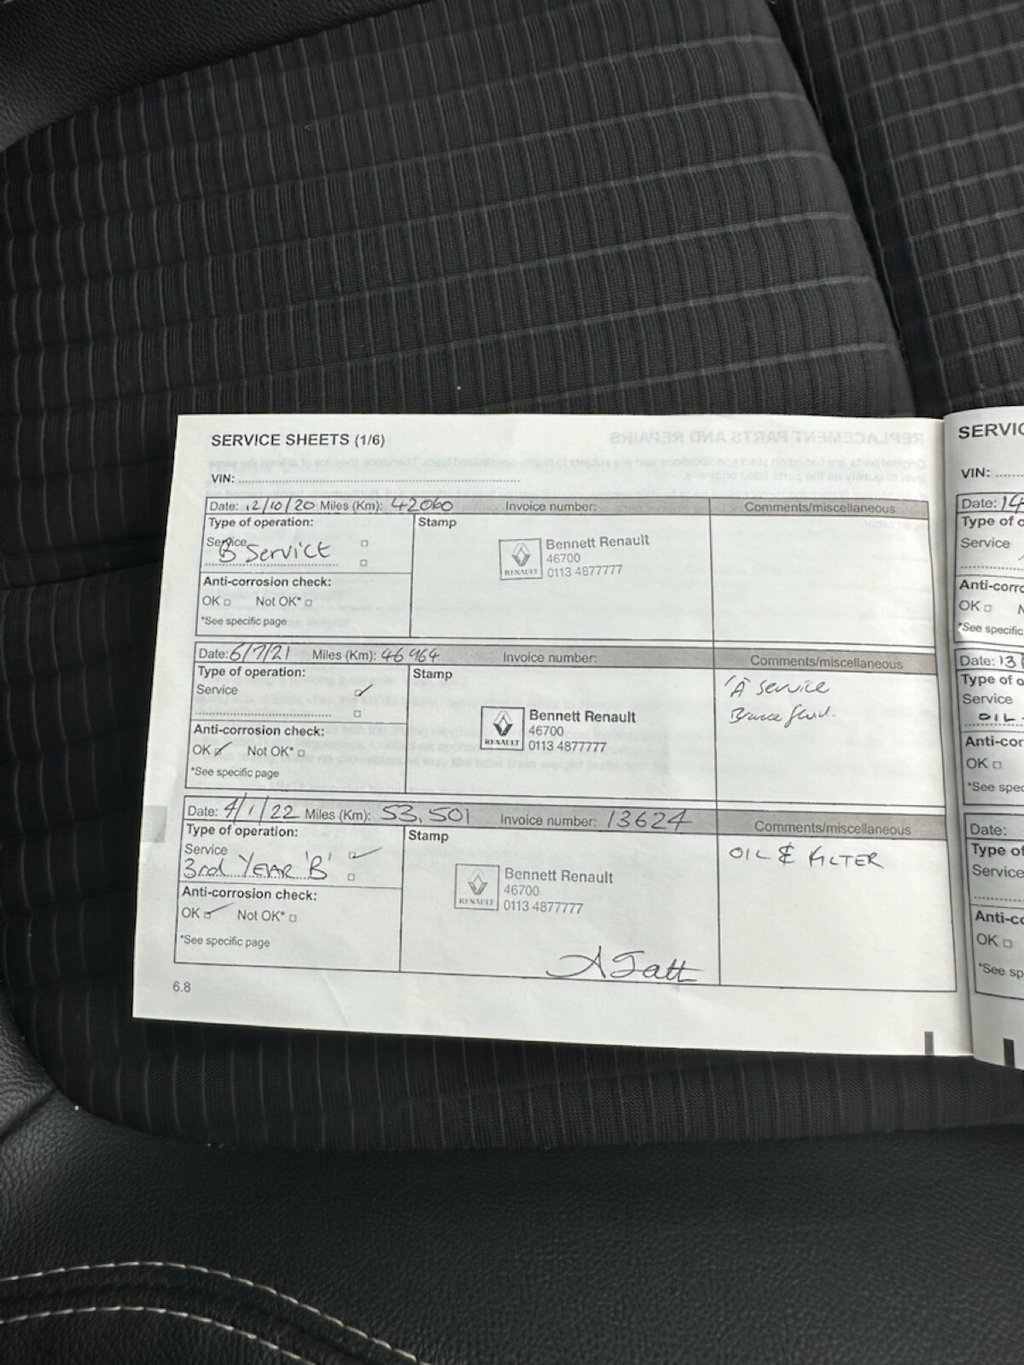 SERVICE SHEETS (1/6)
VIN:
Date: 12/10/20 Miles (Km): 42060 Invoice number: Comments/miscellaneous
Type of operation: Stamp
Service
B Service
Bennett Renault
46700
0113 4877777
RENAULT
Anti-corrosion check:
OK Not OK*
*See specific page
Date: 6/7/21 Miles (Km): 46964 Invoice number: Comments/miscellaneous
Type of operation: Stamp
Service
'A' Service
Brake fluid.
Bennett Renault
46700
0113 4877777
RENAULT
Anti-corrosion check:
OK Not OK*
*See specific page
Date: 4/1/22 Miles (Km): 53,501 Invoice number: 13624 Comments/miscellaneous
Type of operation: Stamp
Service
3rd YEAR 'B'
OIL & FILTER
Bennett Renault
46700
0113 4877777
RENAULT
Anti-corrosion check:
OK Not OK*
*See specific page
6.8
REPLACEMENT PARTS AND REPAIRS
SERVIC
VIN:
Date: 14
Type of o
Service
Anti-corro
OK N
*See specific
Date: 13
Type of o
Service
OIL
Anti-cor
OK
*See spec
Date:
Type of
Service
Anti-co
OK
*See sp